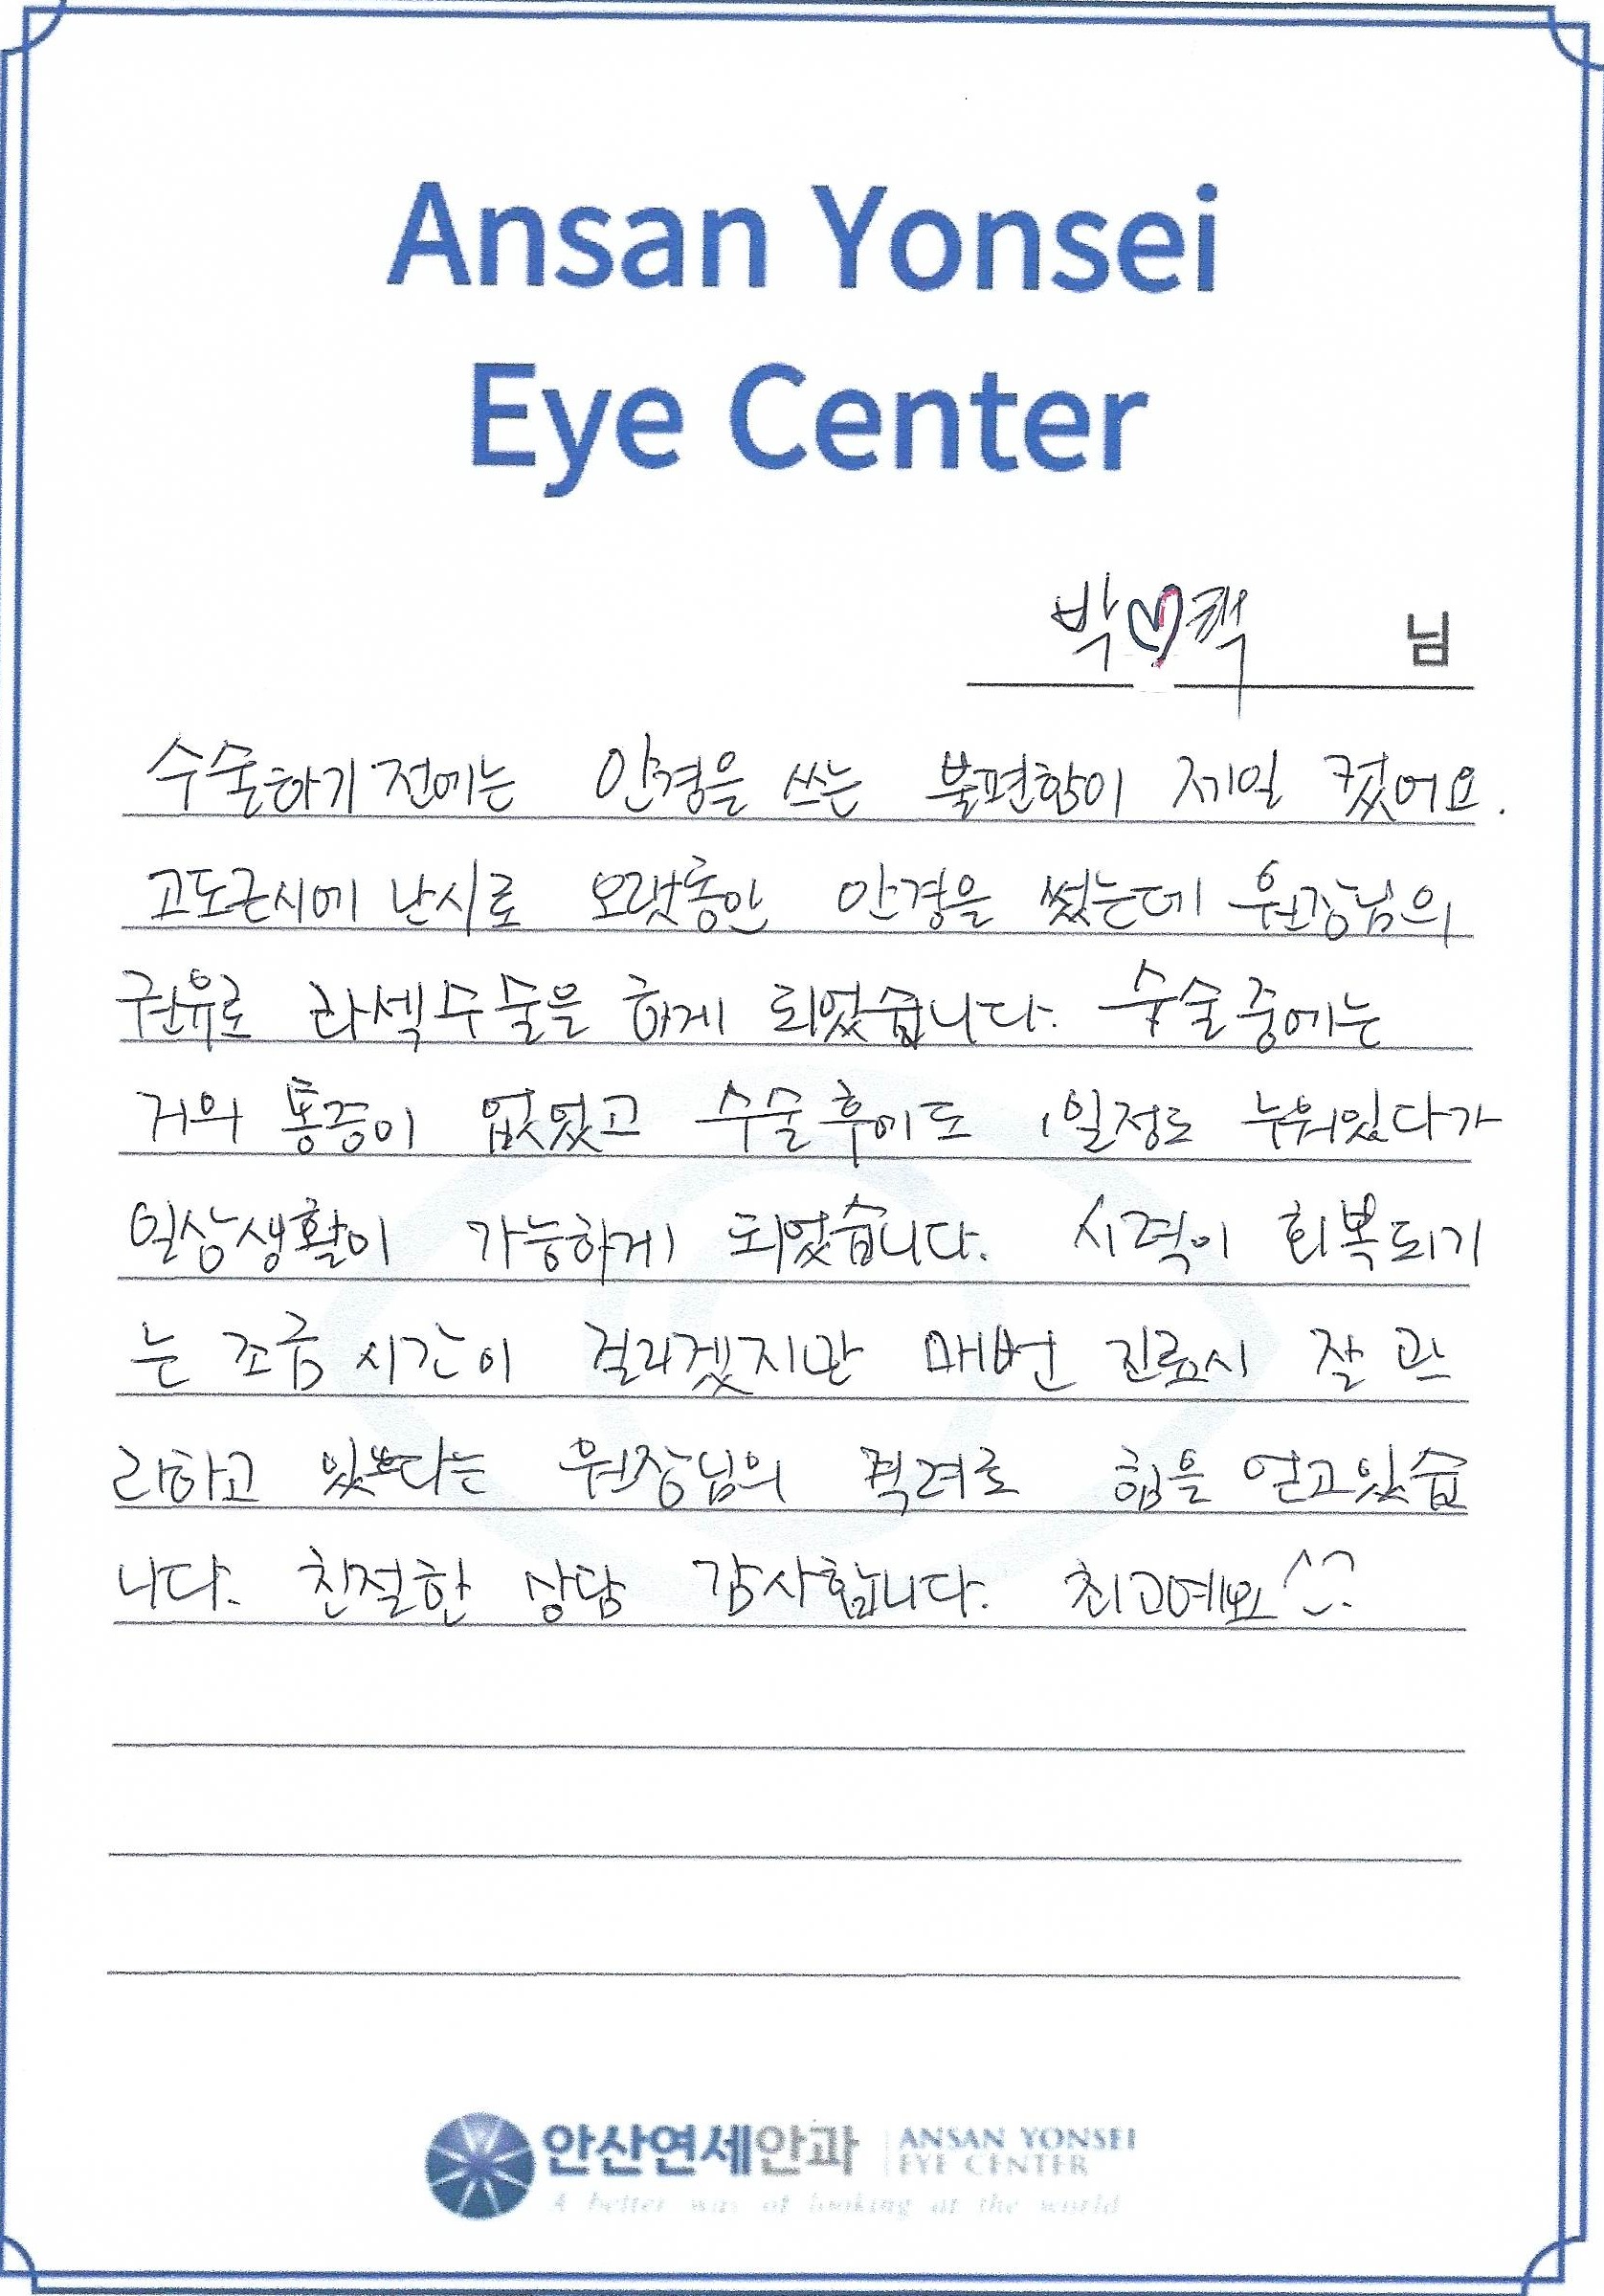 Ansan Yonsei
Eye Center
박♡책 님
수술하기 전에는 안경을 쓰는 불편함이 제일 컸어요.
고도근시에 난시로 오랫동안 안경을 썼는데 원장님의
권유로 라섹수술을 하게 되었습니다. 수술중에는
거의 통증이 없었고 수술후에도 1일정도 누워있다가
일상생활이 가능하게 되었습니다. 시력이 회복되기
는 조금 시간이 걸리겠지만 매번 진료시 잘 관
리하고 있다는 원장님의 격려로 힘을 얻고있습
니다. 친절한 상담 감사합니다. 최고예요^^
안산연세안과 ANSAN YONSEI
EYE CENTER
A better way of looking at the world